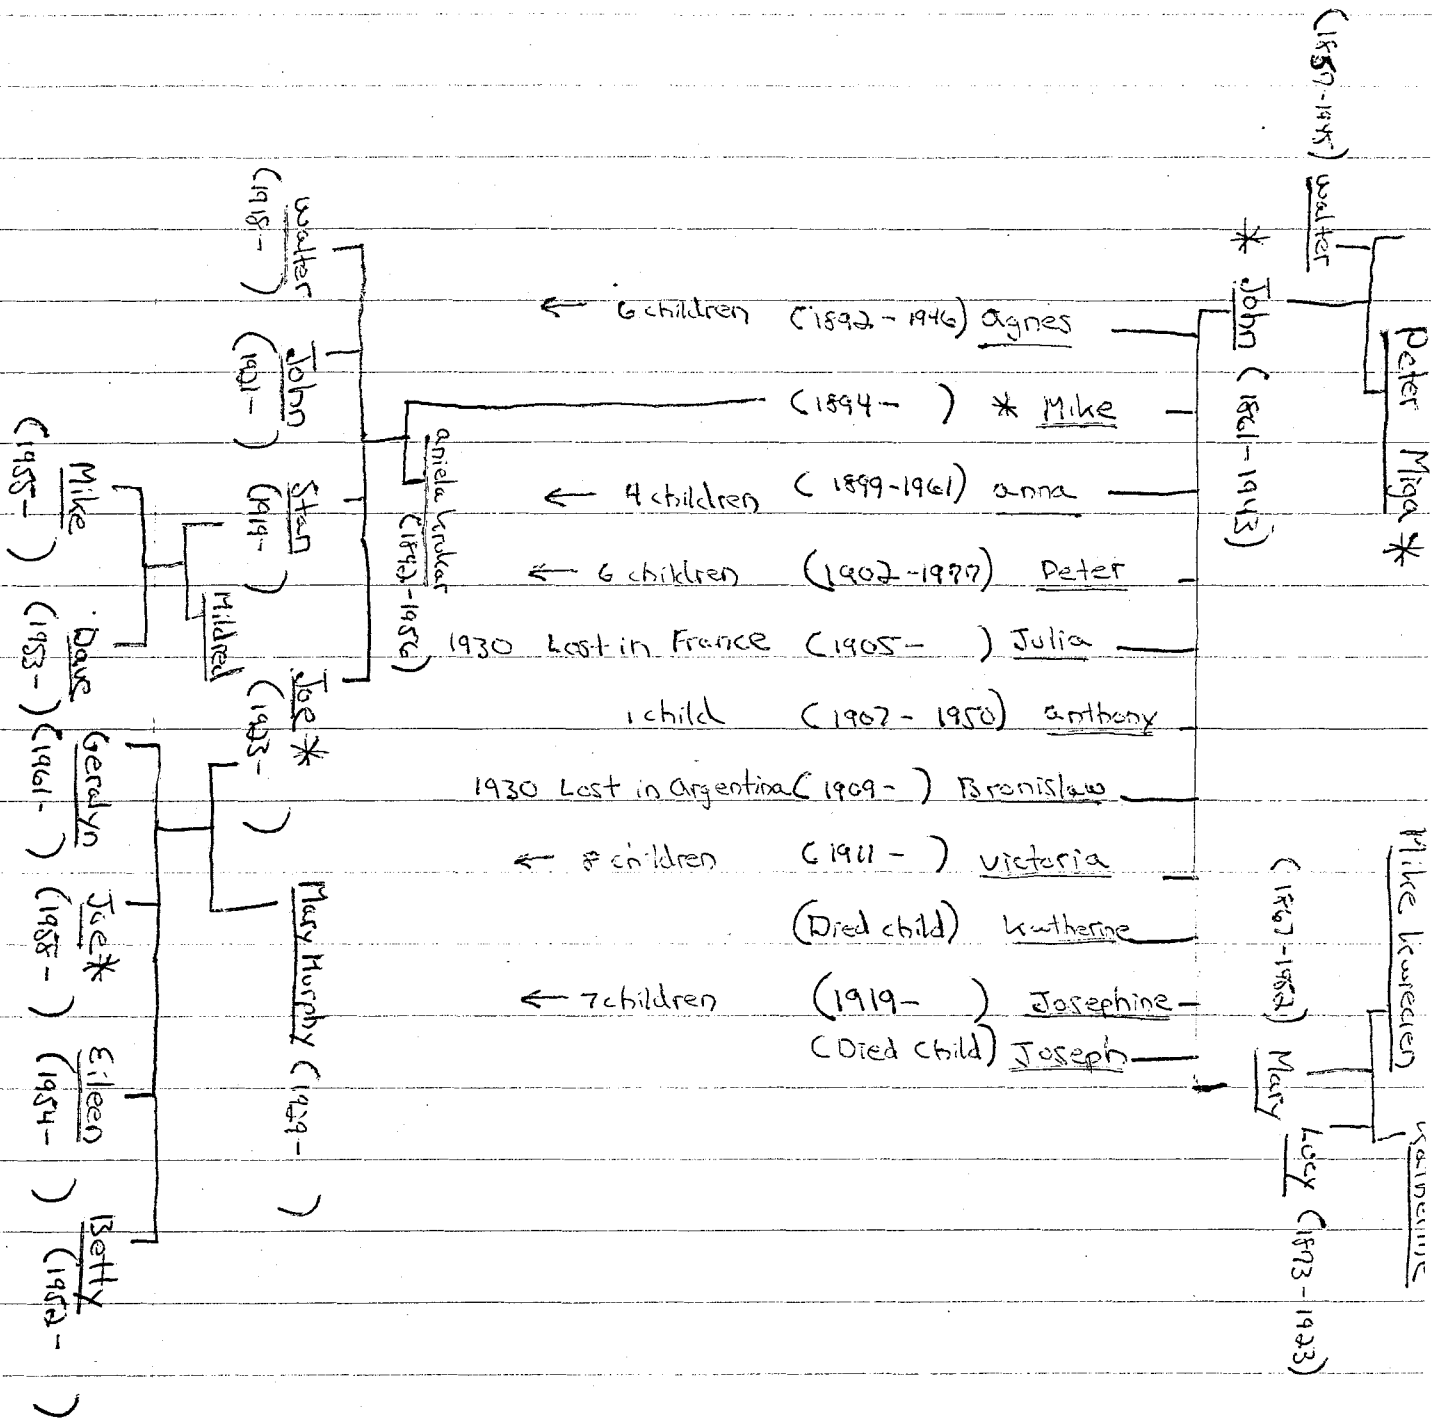 Peter Miga *
Mike Kwiecien
Walter
(1857-1945)
* John (1861-1943)
(1867-1952)
Mary
Lucy (1873-1923)
6 children (1892-1946) Agnes
(1894- ) * Mike
4 children (1899-1961) Anna
6 children (1902-1977) Peter
1930 Lost in France (1905- ) Julia
1 child (1907-1950) Anthony
1930 Lost in Argentina (1909- ) Bronislaw
8 children (1911- ) Victoria
(Died child) Katherine
7 children (1919- ) Josephine
(Died Child) Joseph
Aniela Krukar
(1892-1956)
Walter
(1918- )
John
(1921- )
Stan
(1919- )
Mildred
Joe *
(1923- )
Mary Murphy (1929- )
Mike
(1955- )
Dave
(1953- )
Geralyn
(1961- )
Joe *
(1958- )
Eileen
(1954- )
Betty
(1952- )